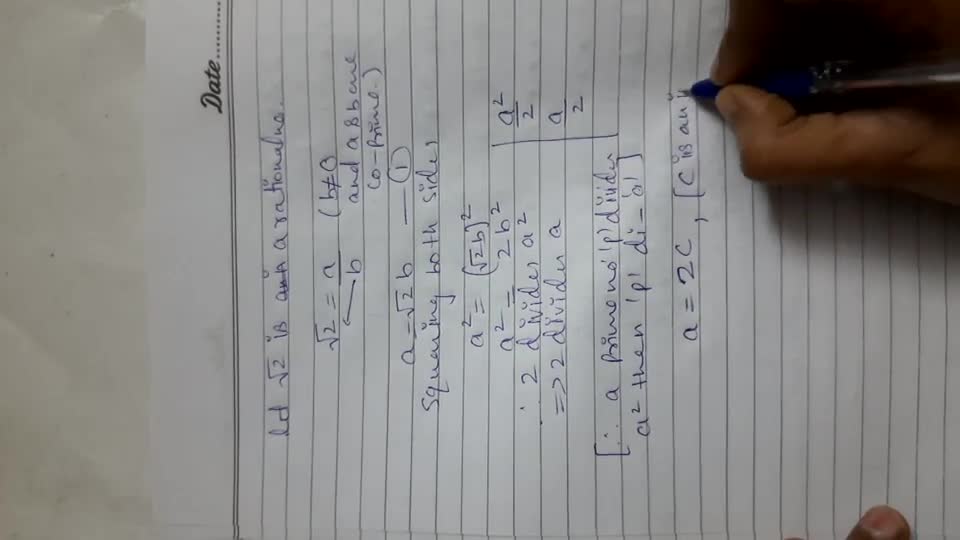 Date..........
let √2 is a rational no.
√2 = a/b (b≠0 and a & b are co-prime.)
a = √2 b — (1)
Squaring both sides
a² = (√2 b)²
a² = 2b²
∴ 2 divides a² | a²/2
=> 2 divides a | a/2
[∵ a prime no 'p' divides
a² then 'p' di - 'a']
a = 2C , [C is an